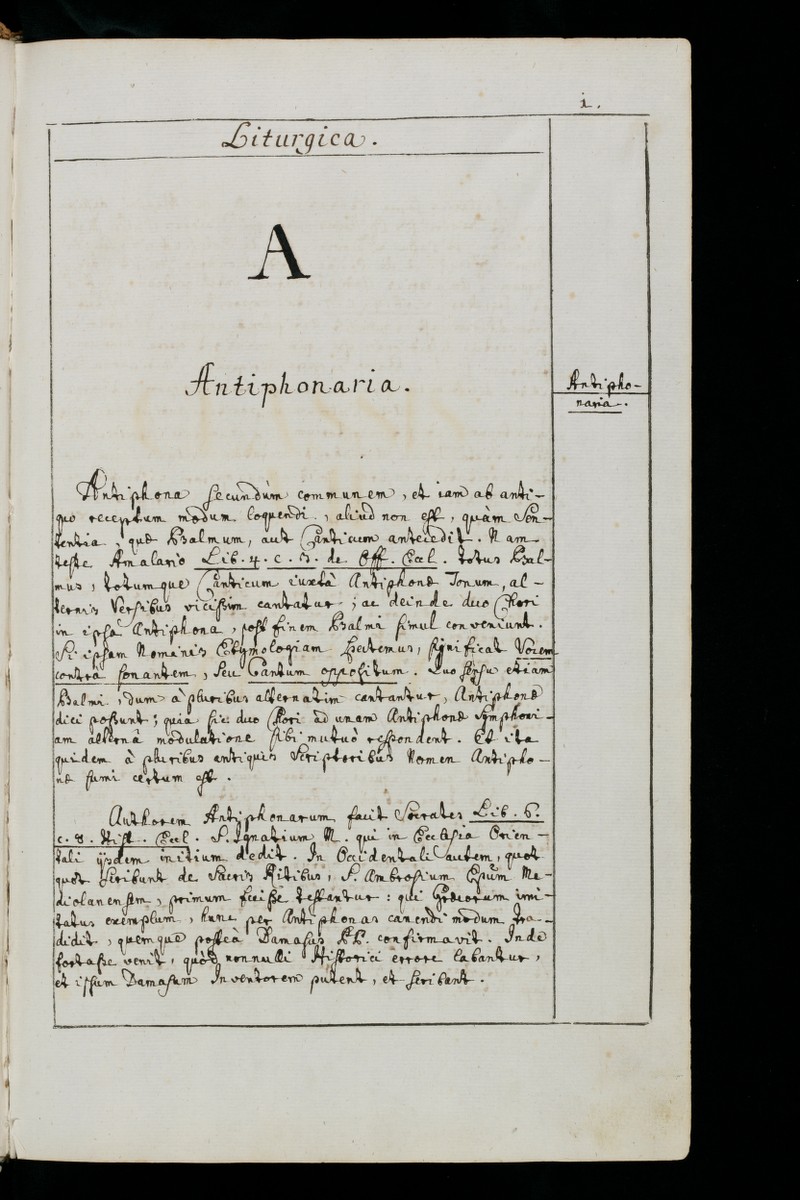 1.
Liturgica.
A
Antiphonaria.
Antipho-
naria.
Antiphona secundùm communem, et iam ab anti-
quo receptum modum loquendi, aliud non est, quàm Sen-
tentia, quæ Psalmum, aut Canticum antecedit. Nam
teste Amalario Lib. 4. c. 3. de Off. Eccl. totus Psal-
mus, totumque Canticum iuxtà Antiphonæ Tonum, al-
ternis Versibus vicissim cantatur; ac deinde duo Chori
in ipsa Antiphona, post finem Psalmi simul conveniunt.
Si ipsam Nominis Etymologiam spectemus, significat Vocem
contra sonantem, seu Cantum oppositum. Quo sensu etiam
Psalmi, dum à pluribus alternatim cantantur, Antiphonæ
dici possunt; quia sic duo Chori ad unam Antiphonæ symphoni-
am alternâ modulatione sibi mutuò respondent. Et ita
quidem à pluribus antiquis Scriptoribus Nomen Antipho-
næ sumi certum est.
Authorem Antiphonarum facit Socrates Lib. 6.
c. 8. Hist. Eccl. S. Ignatium M. qui in Ecclesia Orien-
tali ijsdem initium dedit. In Occidentali autem, quot
quot scribunt de Sacris Ritibus, S. Ambrosium Epũm Me-
diolanensem, primum fuisse testantur: qui Græcorum imi-
tatus exemplum, hunc per Antiphonas canendi modum tra-
didit, quemque posteà Damasus PP. confirmavit. Inde
fortasse venit, quòd nonnulli Historici errore labantur,
et ipsum Damasum Inventorem putent, et scribant.